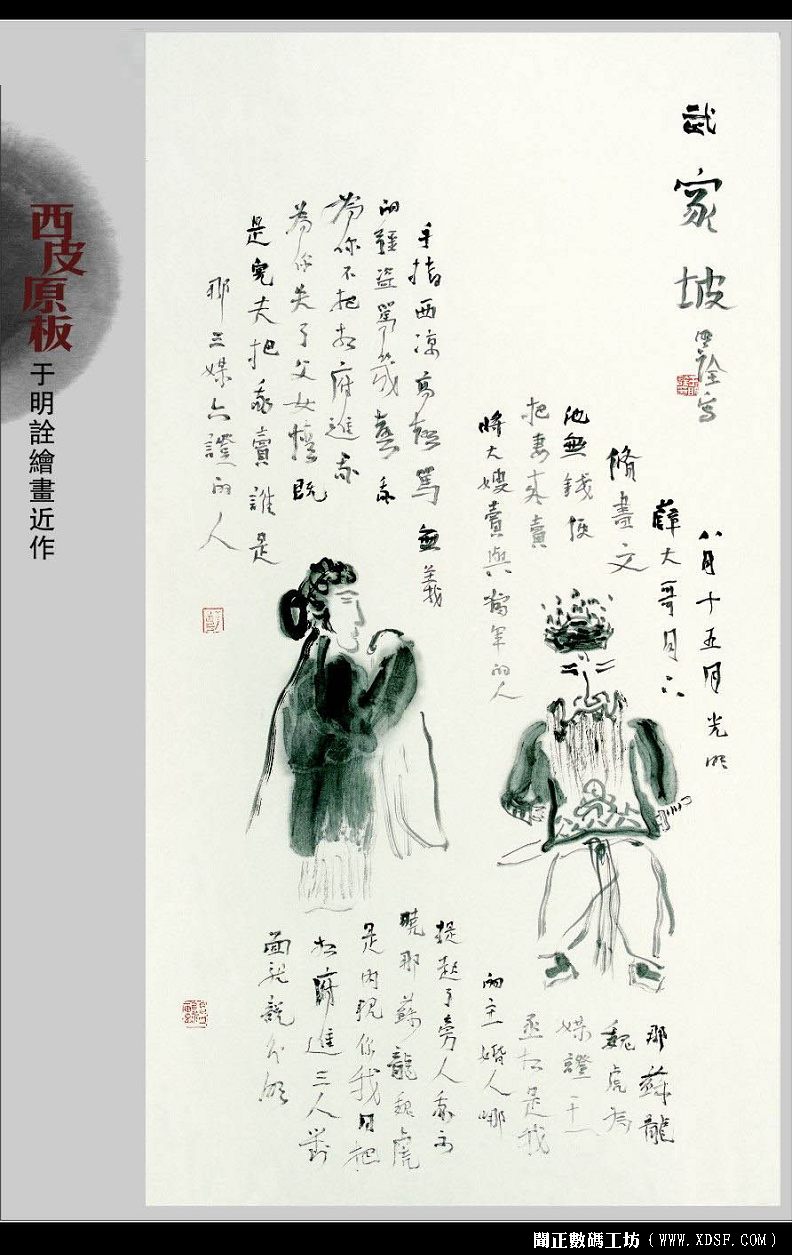 西皮原板
于明詮繪畫近作
武家坡
明詮寫
八月十五月光明
薛大哥月下
脩書文
他無錢便
把妻來賣
將大嫂賣與當軍的人
手指西凉高聲罵無義
的疆盜罵幾聲我
為你不把相府進我
為你失了父女情既
是兒夫把我賣誰是
那三媒六證的人
那蘇龍
魏虎為
媒證王
丞相是我
的主婚人哪
提起了旁人我不
曉那蘇龍魏虎
是內親你我同把
相府進三人對
面說分明
聞正數碼工坊（WWW.XDSF.COM）